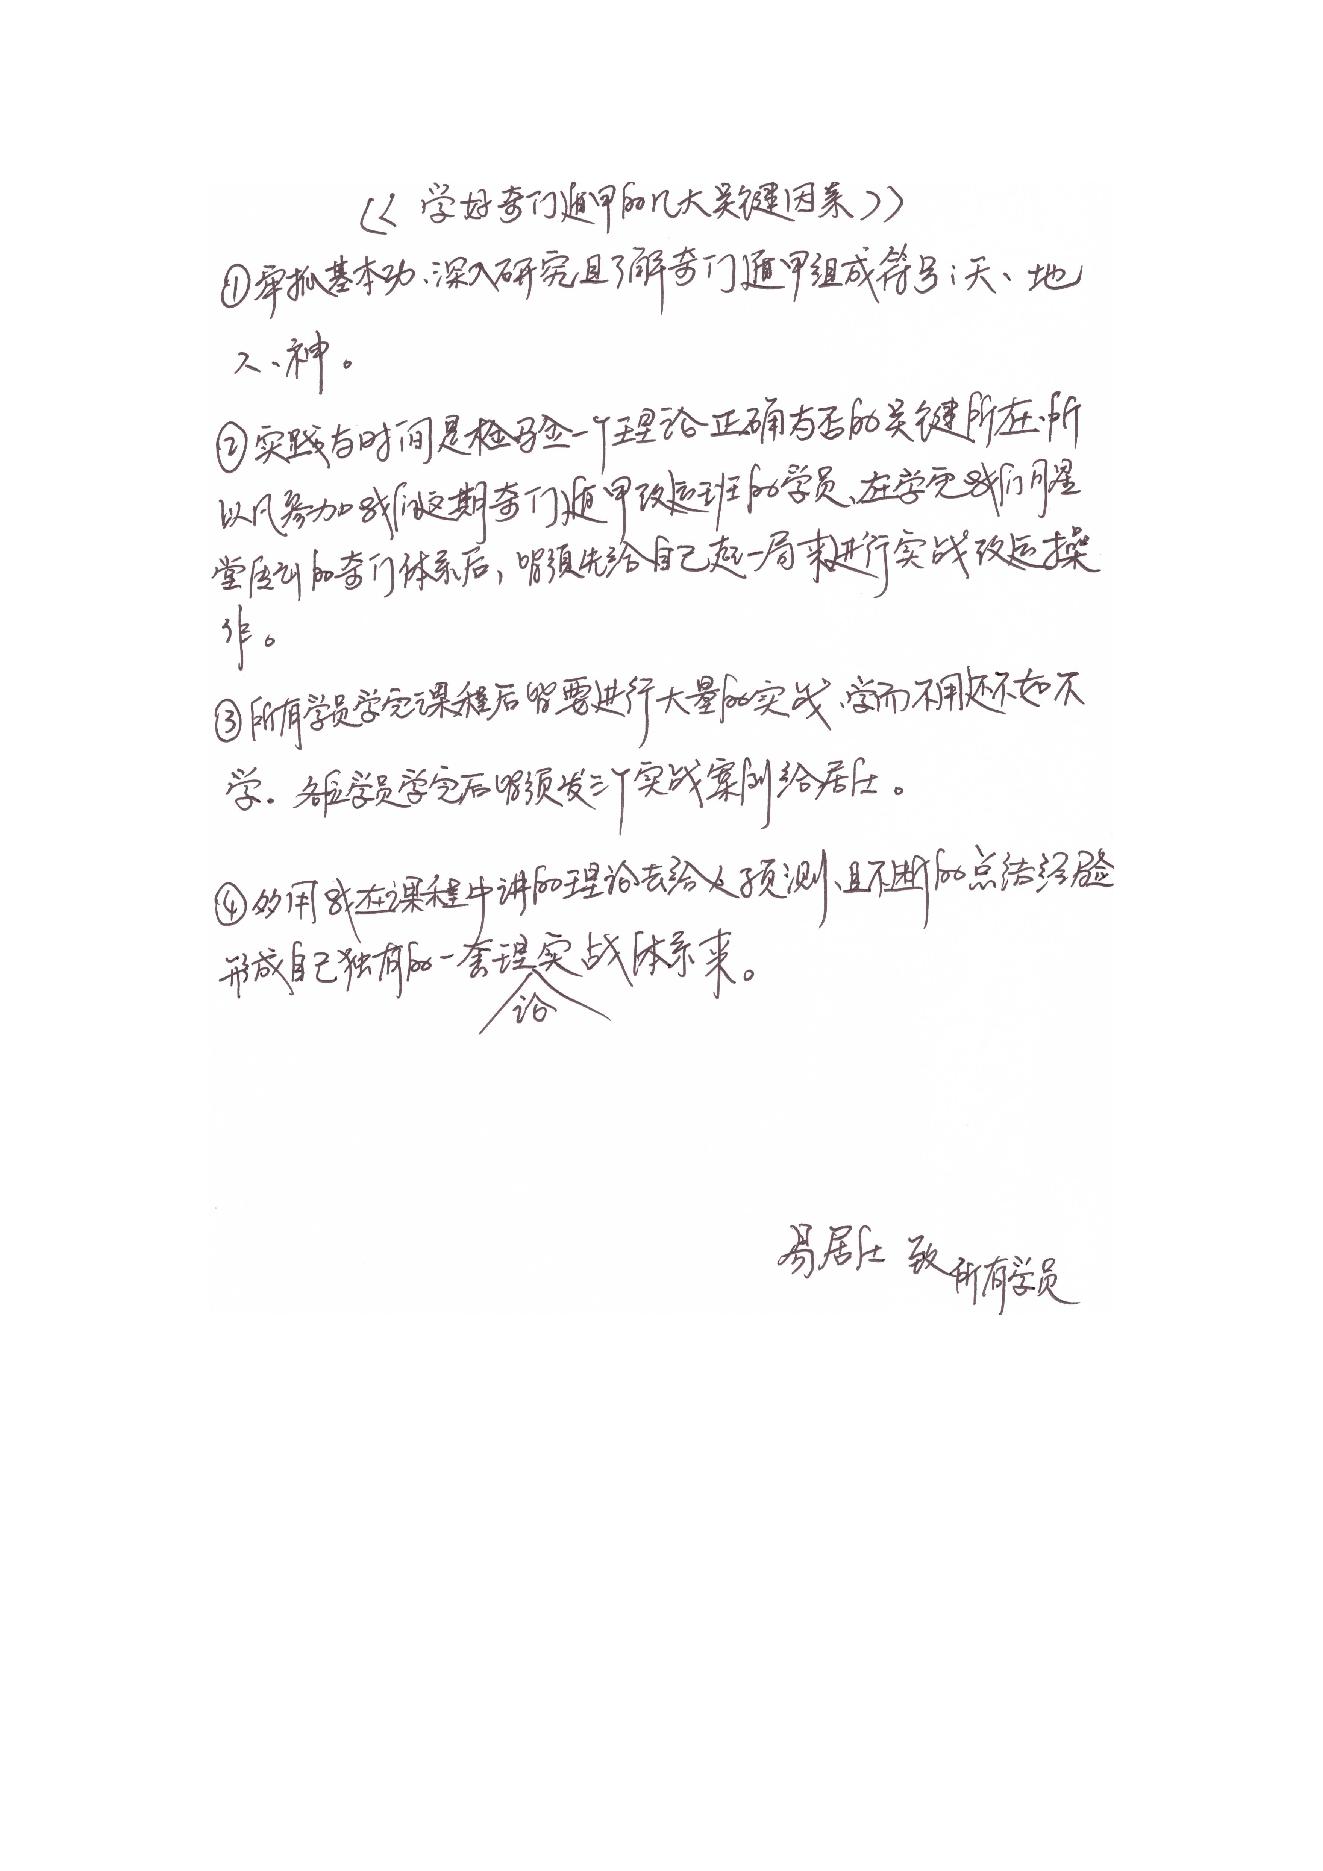 《学好奇门遁甲的几大关键因素》
①牢抓基本功、深入研究且了解奇门遁甲组成符号:天、地
人、神。
②实践与时间是检验一个理论正确与否的关键所在.所
以凡参加我们这期奇门遁甲改运班的学员、在学完我们
堂的奇门体系后,皆须先给自己起一局来进行实战改运操
作。
③所有学员学完课程后皆要进行大量的实战、学而不用还不如不
学.各位学员学完后皆须发三个实战案例给居士。
④多用我在课程中讲的理论去给人预测、且不断的总结经验
形成自己独有的一套理论实战体系来。
易居士 致所有学员